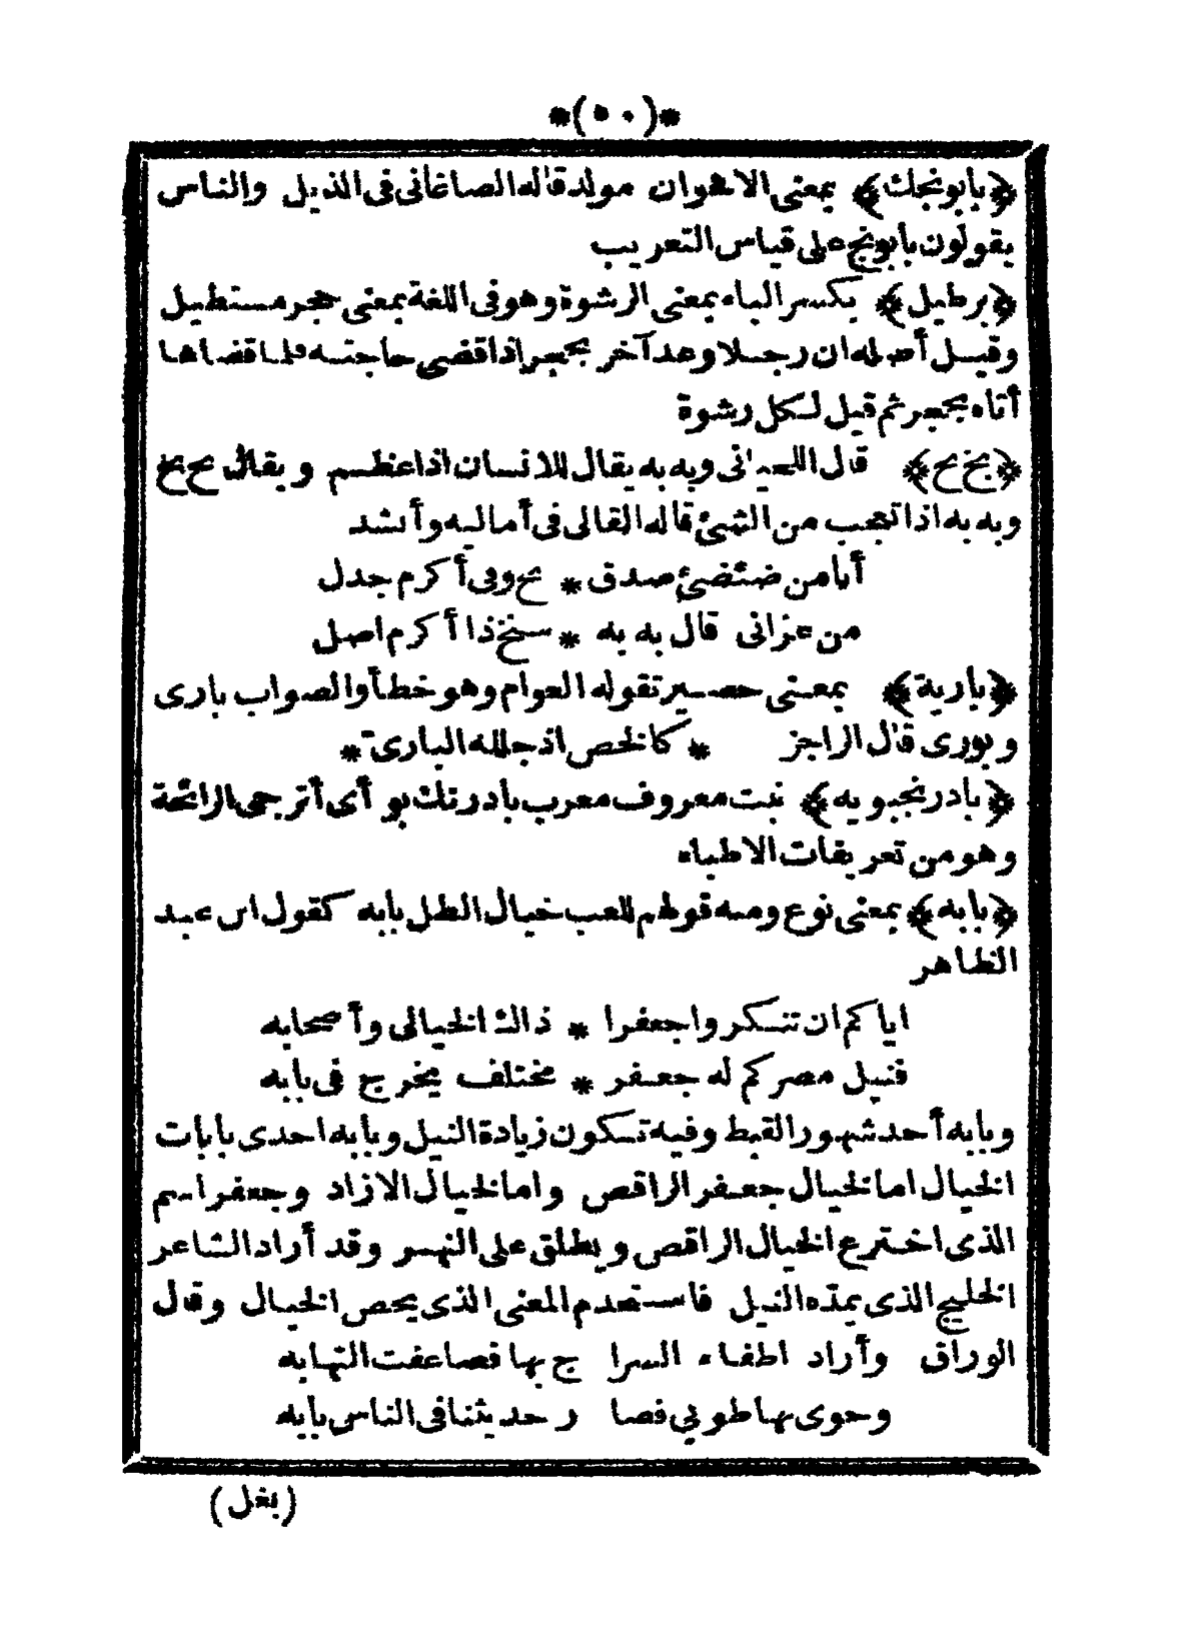 *(٥٠)*
﴿بابونجك﴾ بمعنى الاقحوان مولد قاله الصاغانى فى الذيل والناس
يقولون بابونج على قياس التعريب
﴿برطيل﴾ بكسر الباء بمعنى الرشوة وهو فى اللغة بمعنى حجر مستطيل
وقيل أصله ان رجلا وعد آخر بحجر اذا قضى حاجته فلما قضاها
أتاه بحجر ثم قيل لكل رشوة
﴿بخ بخ﴾ قال اللحيانى وبه به يقال للانسان اذا عظم ويقال بخ بخ
وبه به اذا تعجب من الشئ قاله القالى فى أماليه وأنشد
أنا من ضئضئ صدق * بخ وفى أكرم جدل
من عزانى قال به به * سنخ ذا أكرم اصل
﴿بارية﴾ بمعنى حصير تقوله العوام وهو خطأ والصواب بارى
وبورى قال الراجز * كالخص اذ جلله البارى *
﴿بادرنجبويه﴾ نبت معروف معرب بادرنك بو أى أترجى الرائحة
وهو من تعريفات الاطباء
﴿بابه﴾ بمعنى نوع ومنه قولهم للعب خيال الظل بابه كقول ابن عبد
الظاهر
اياكم ان تنكروا جعفرا * ذاك الخيالى وأصحابه
فنيل مصركم له جعفر * مختلف يخرج فى بابه
وبابه أحد شهور القبط وفيه تكون زيادة النيل وبابه احدى بابات
الخيال اما لخيال جعفر الراقص واما لخيال الازاد وجعفر اسم
الذى اخترع الخيال الراقص ويطلق على النهر وقد أراد الشاعر
الخليج الذى يمده النيل فاستخدم المعنى الذى يخص الخيال وقال
الوراق وأراد اطفاء السرا ج بها فصاعفت التهابه
وحوى بها طوبي فصا ر حديثنا فى الناس بابه
(بغل)